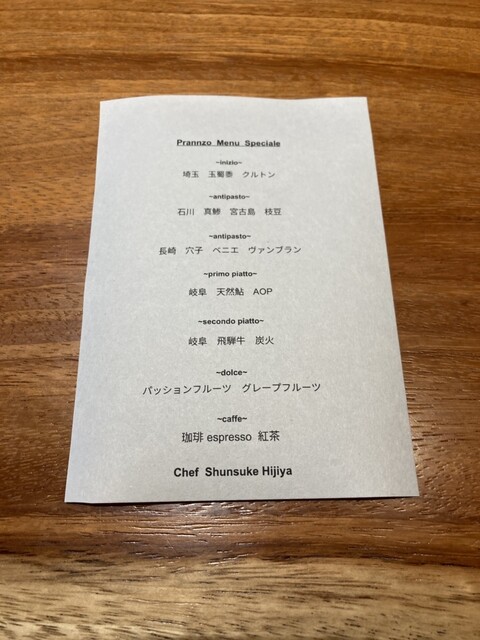 Prannzo Menu Speciale
~inizio~
埼玉 玉蜀黍 クルトン
~antipasto~
石川 真鯵 宮古島 枝豆
~antipasto~
長崎 穴子 ベニエ ヴァンブラン
~primo piatto~
岐阜 天然鮎 AOP
~secondo piatto~
岐阜 飛騨牛 炭火
~dolce~
パッションフルーツ グレープフルーツ
~caffe~
珈琲 espresso 紅茶
Chef Shunsuke Hijiya